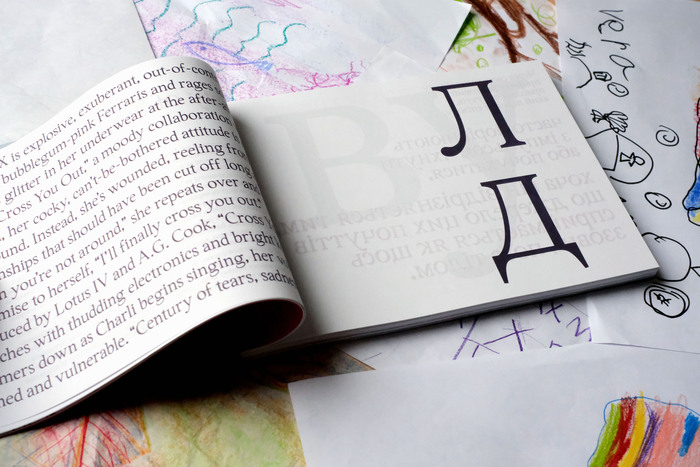 X is explosive, exuberant, out-of-con
bubblegum-pink Ferraris and rages
glitter in her underwear at the after-
Cross You Out,” a moody collaboration
, her cocky, can’t-be-bothered attitude
und. Instead, she’s wounded, reeling fro
nships that should have been cut off long
n you’re not around,” she repeats over and
mise to herself, “I’ll finally cross you out.”
uced by Lotus IV and A.G. Cook, “Cross
ches with thudding electronics and bright
mers down as Charli begins singing, her
ned and vulnerable. “Century of tears, sadn
Л
Д